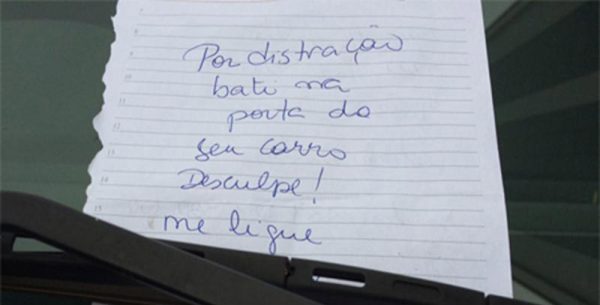 Por distração
bati na
porta do
seu carro
Desculpe!
me ligue